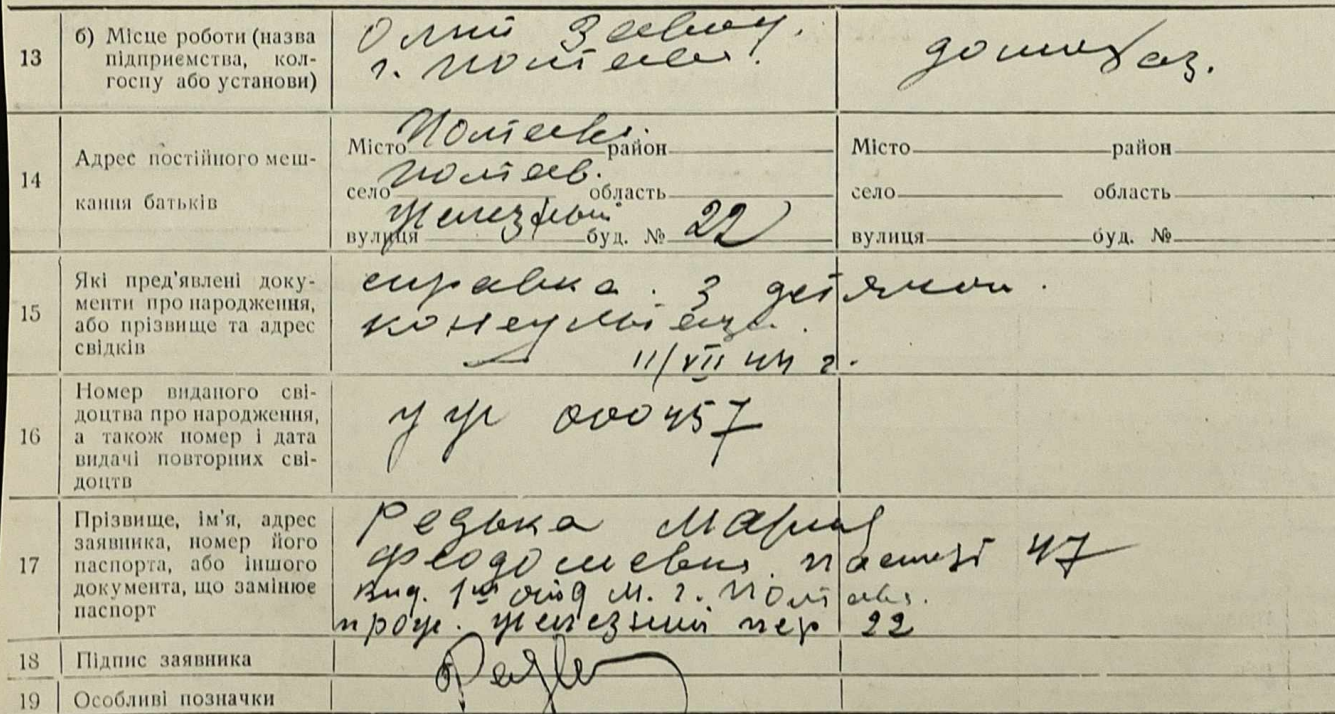 13
б) Місце роботи (назва
підприємства, кол-
госпу або установи)
Олій Завод.
г. Полтава.
домохаз.
14
Адрес постійного меш-
кання батьків
Місто Полтава район
село Полтав. область
вулиця Железный буд. № 22
Місто район
село область
вулиця буд. №
15
Які пред'явлені доку-
менти про народження,
або прізвище та адрес
свідків
справка. З дитячой
консультац.
11/VII 44 г.
16
Номер виданого сві-
доцтва про народження,
а також номер і дата
видачі повторних сві-
доцтв
000457
17
Прізвище, ім'я, адрес
заявника, номер його
паспорта, або іншого
документа, що замінює
паспорт
Редька Мария
47
вид. 1 м. г. Полтавы.
прож. железный пер 22
18
Підпис заявника
19
Особливі позначки